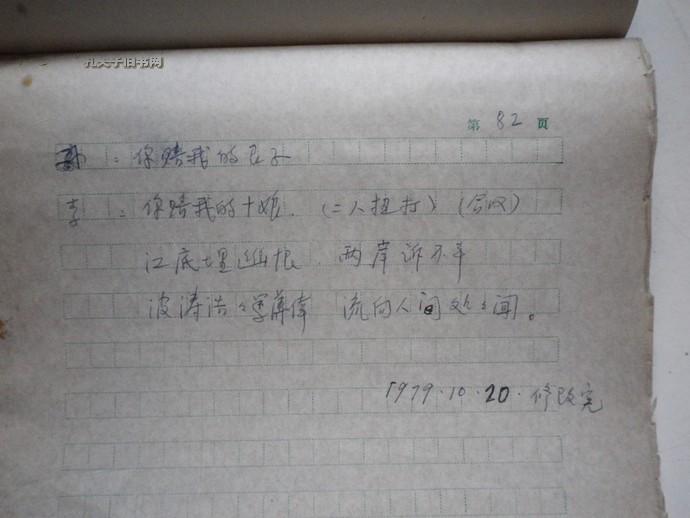 孔夫子旧书网
第 82 页
孙：你赔我的银子
李：你赔我的十娘．（二人扭打）（合唱）
江底埋幽恨．两岸诉不平
波涛浩々 流向人间处々闻。
1979·10·20·修改完